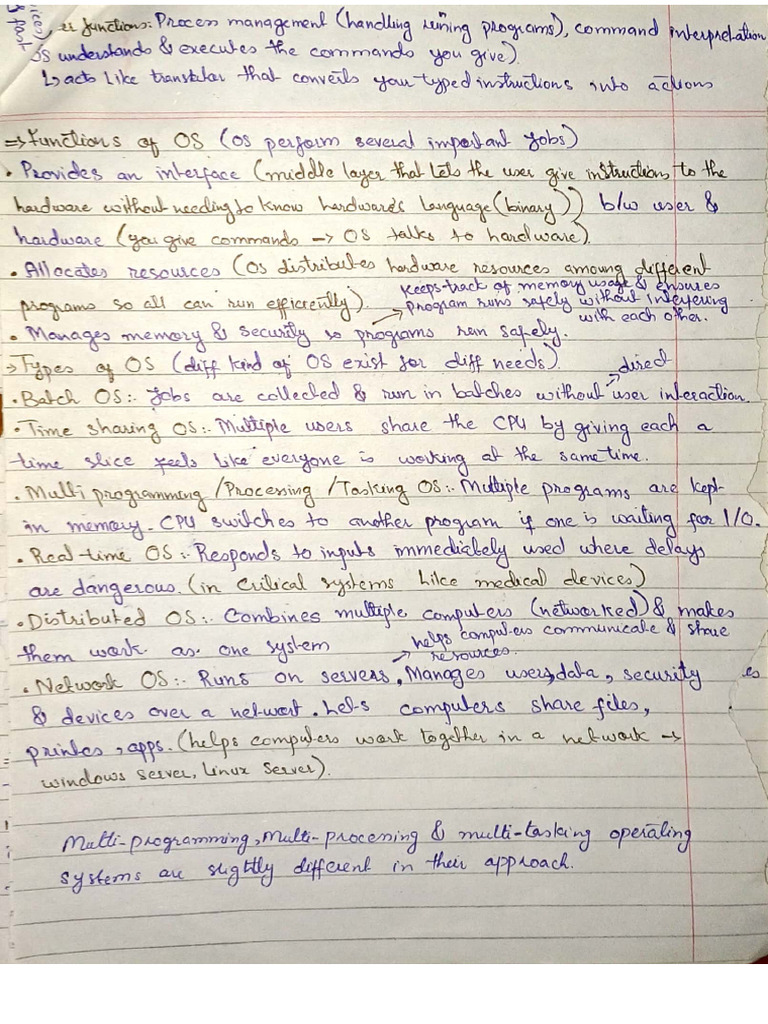 functions: Process management (handling runing programs), command interpretation
OS understands & executes the commands you give).
↳ acts like translator that converts your typed instructions into actions
⇒ Functions of OS (OS perform several important jobs)
• Provides an interface (middle layer that lets the user give instructions to the
hardware without needing to know hardware's language (binary)) b/w user &
hardware (you give commands → OS talks to hardware).
• Allocates resources (OS distributes hardware resources amoung different
programs so all can run efficiently).
Keeps track of memory usage & ensures
program runs safely without inteyering
with each other.
• Manages memory & security so programs run safely.
→ Types of OS (diff kind of OS exist for diff needs).
direct
• Batch OS:- Jobs are collected & run in batches without user interaction.
• Time sharing OS:- Multiple users share the CPU by giving each a
time slice feels like everyone is working at the same time.
• Multi programming / Processing / Tasking OS:- Multiple programs are kept
in memory. CPU switches to another program if one is waiting for I/O.
• Real-time OS:- Responds to inputs immediately used where delays
are dangerous. (in critical systems like medical devices)
• Distributed OS:- Combines multiple computers (networked) & makes
them work as one system
helps computers communicate & share
resources.
• Network OS:- Runs on servers, Manages users, data, security es
& devices over a network. Lets computers share files,
printes, apps. (helps computers work together in a network →
windows server, Linux Server).
Multi-programming, Multi-processing & multi-tasking operating
systems are slightly different in their approach.